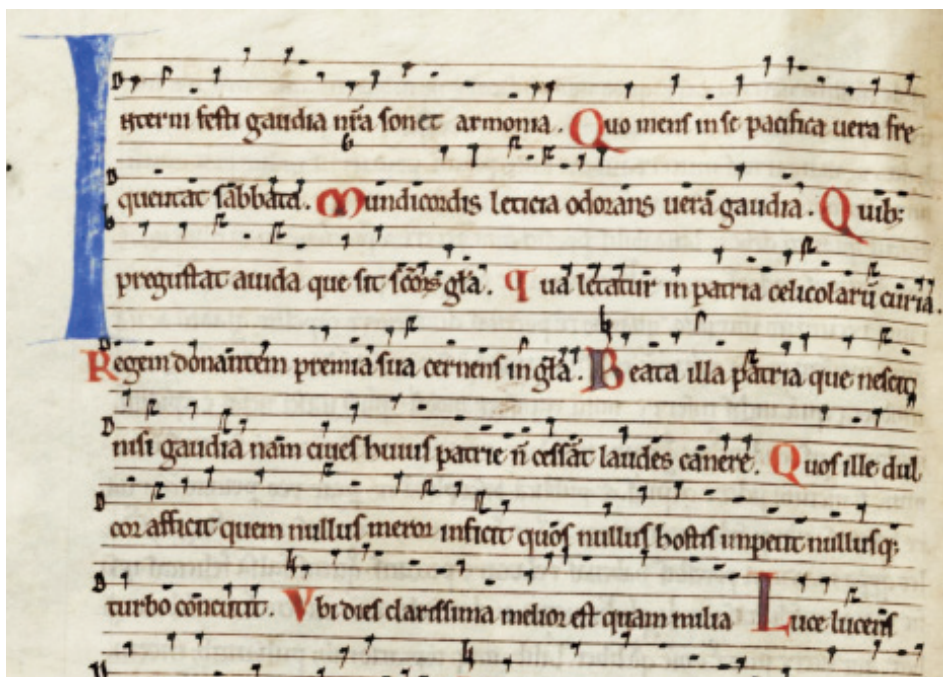 Interni festi gaudia nr̄a sonet armonia. Quo mens in se pacifica uera fre
quentat sabbata. Mundi cordis leticia odorans uera gaudia. Quib;
pregustat auida que sit sc̄ōꝝ gl̄a. qua letatur in patria celicolarū curia.
Regem donantem premia sua cernens in gl̄a. Beata illa patria que nescit
nisi gaudia nam ciues huius patrie n̄ cessāt laudes canere. Quos ille dul
cor afficit quem nullus meror inficit quos nullus hostis impetit nullusq;
turbo concutit. Vbi dies clarissima melior est quam milia Luce lucens